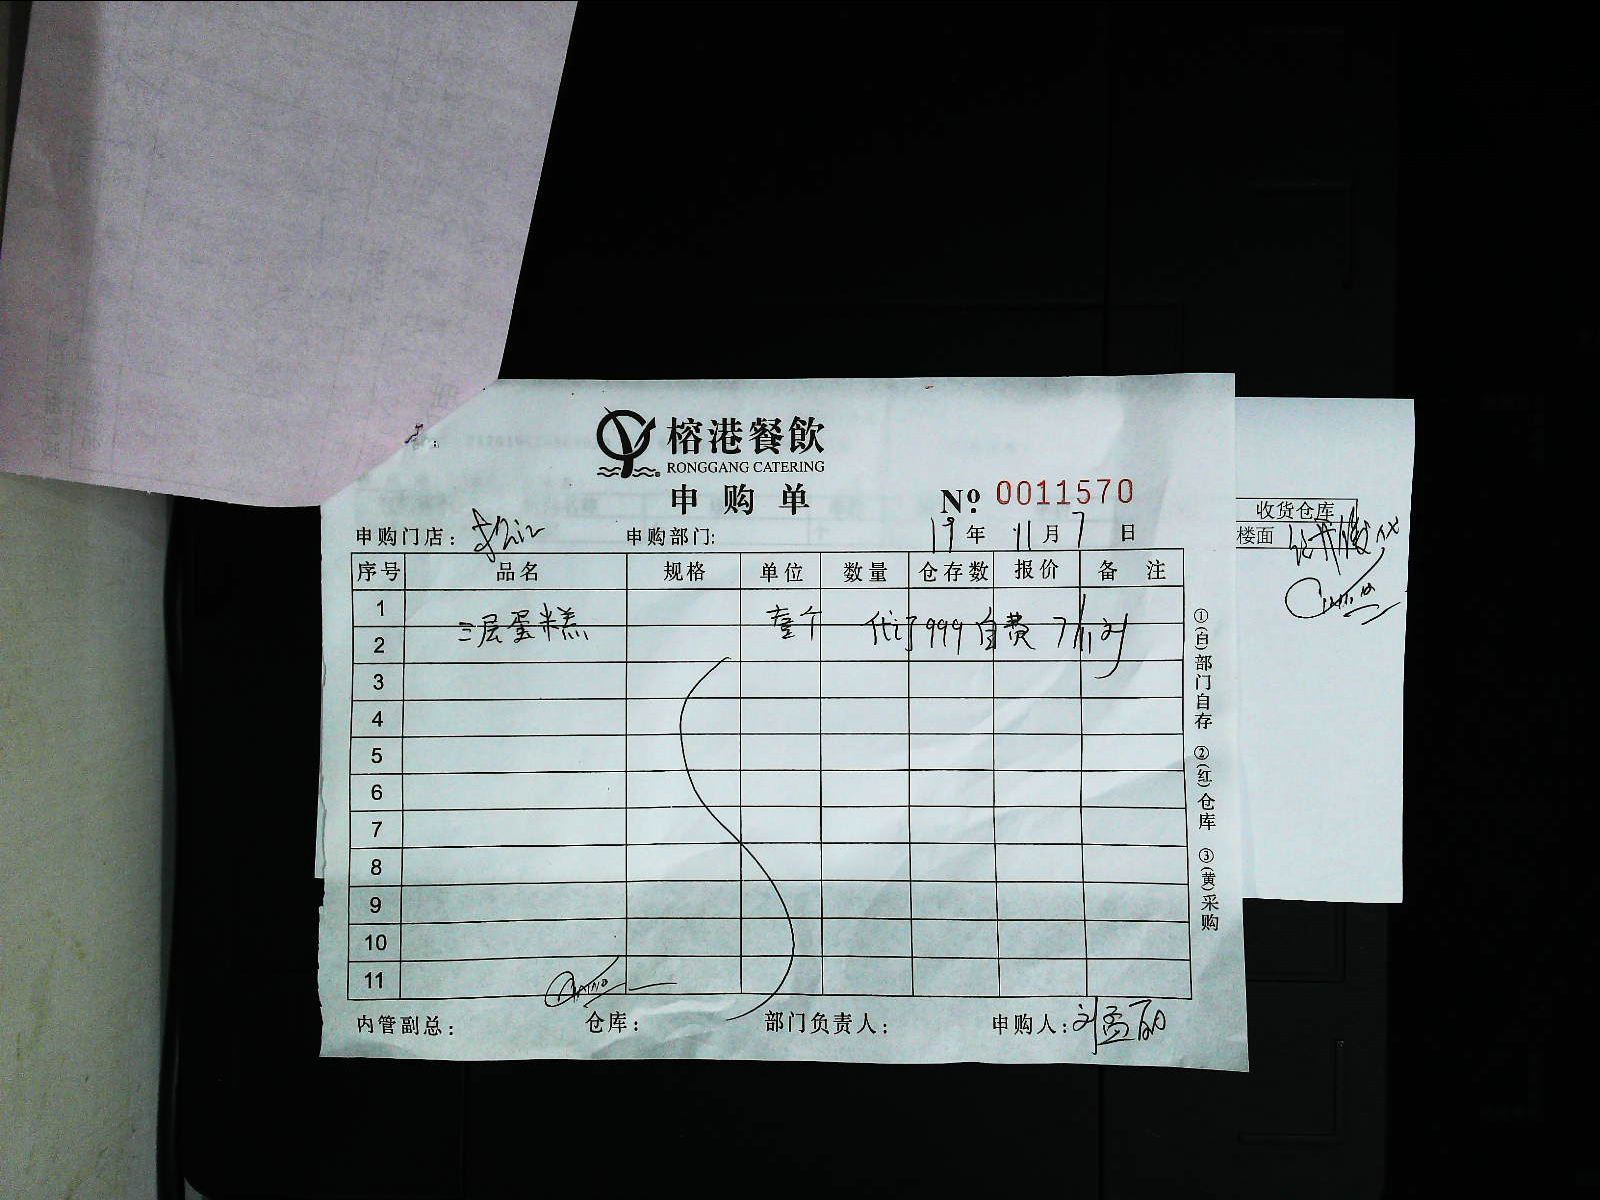 榕港餐飲
RONGGANG CATERING
申购单
№: 0011570
申购门店: 申购部门: 19年11月7日
序号 品名 规格 单位 数量 仓存数 报价 备注
1
2 三层蛋糕 壹个 代订999自费 7/11刘
3
4
5
6
7
8
9
10
11
内管副总: 仓库: 部门负责人: 申购人:刘孟
①(白)部门自存 ②(红)仓库 ③(黄)采购
收货仓库
楼面